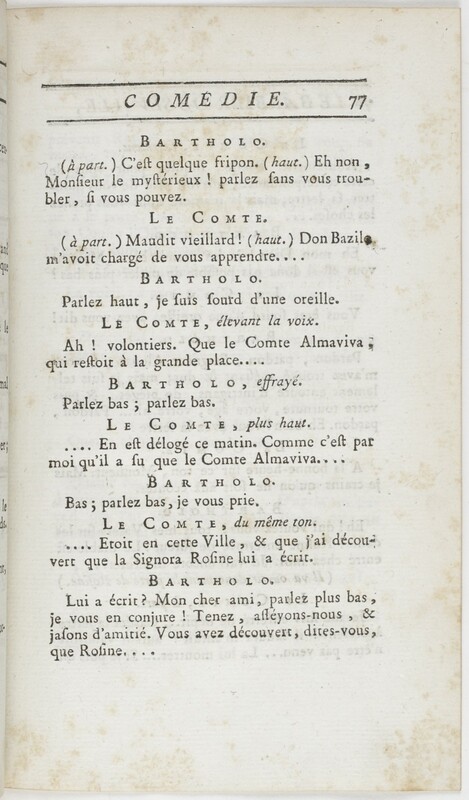 COMÉDIE. 77
BARTHOLO.
(à part.) C'eſt quelque fripon. (haut.) Eh non,
Monſieur le myſtérieux ! parlez ſans vous trou-
bler, ſi vous pouvez.
LE COMTE.
(à part.) Maudit vieillard ! (haut.) Don Bazile
m'avoit chargé de vous apprendre....
BARTHOLO.
Parlez haut, je ſuis ſourd d'une oreille.
LE COMTE, élevant la voix.
Ah ! volontiers. Que le Comte Almaviva,
qui reſtoit à la grande place....
BARTHOLO, effrayé.
Parlez bas ; parlez bas.
LE COMTE, plus haut.
.... En eſt délogé ce matin. Comme c'eſt par
moi qu'il a ſu que le Comte Almaviva....
BARTHOLO.
Bas ; parlez bas, je vous prie.
LE COMTE, du même ton.
.... Etoit en cette Ville, & que j'ai décou-
vert que la Signora Roſine lui a écrit.
BARTHOLO.
Lui a écrit ? Mon cher ami, parlez plus bas,
je vous en conjure ! Tenez, aſſéyons-nous, &
jaſons d'amitié. Vous avez découvert, dites-vous,
que Roſine....